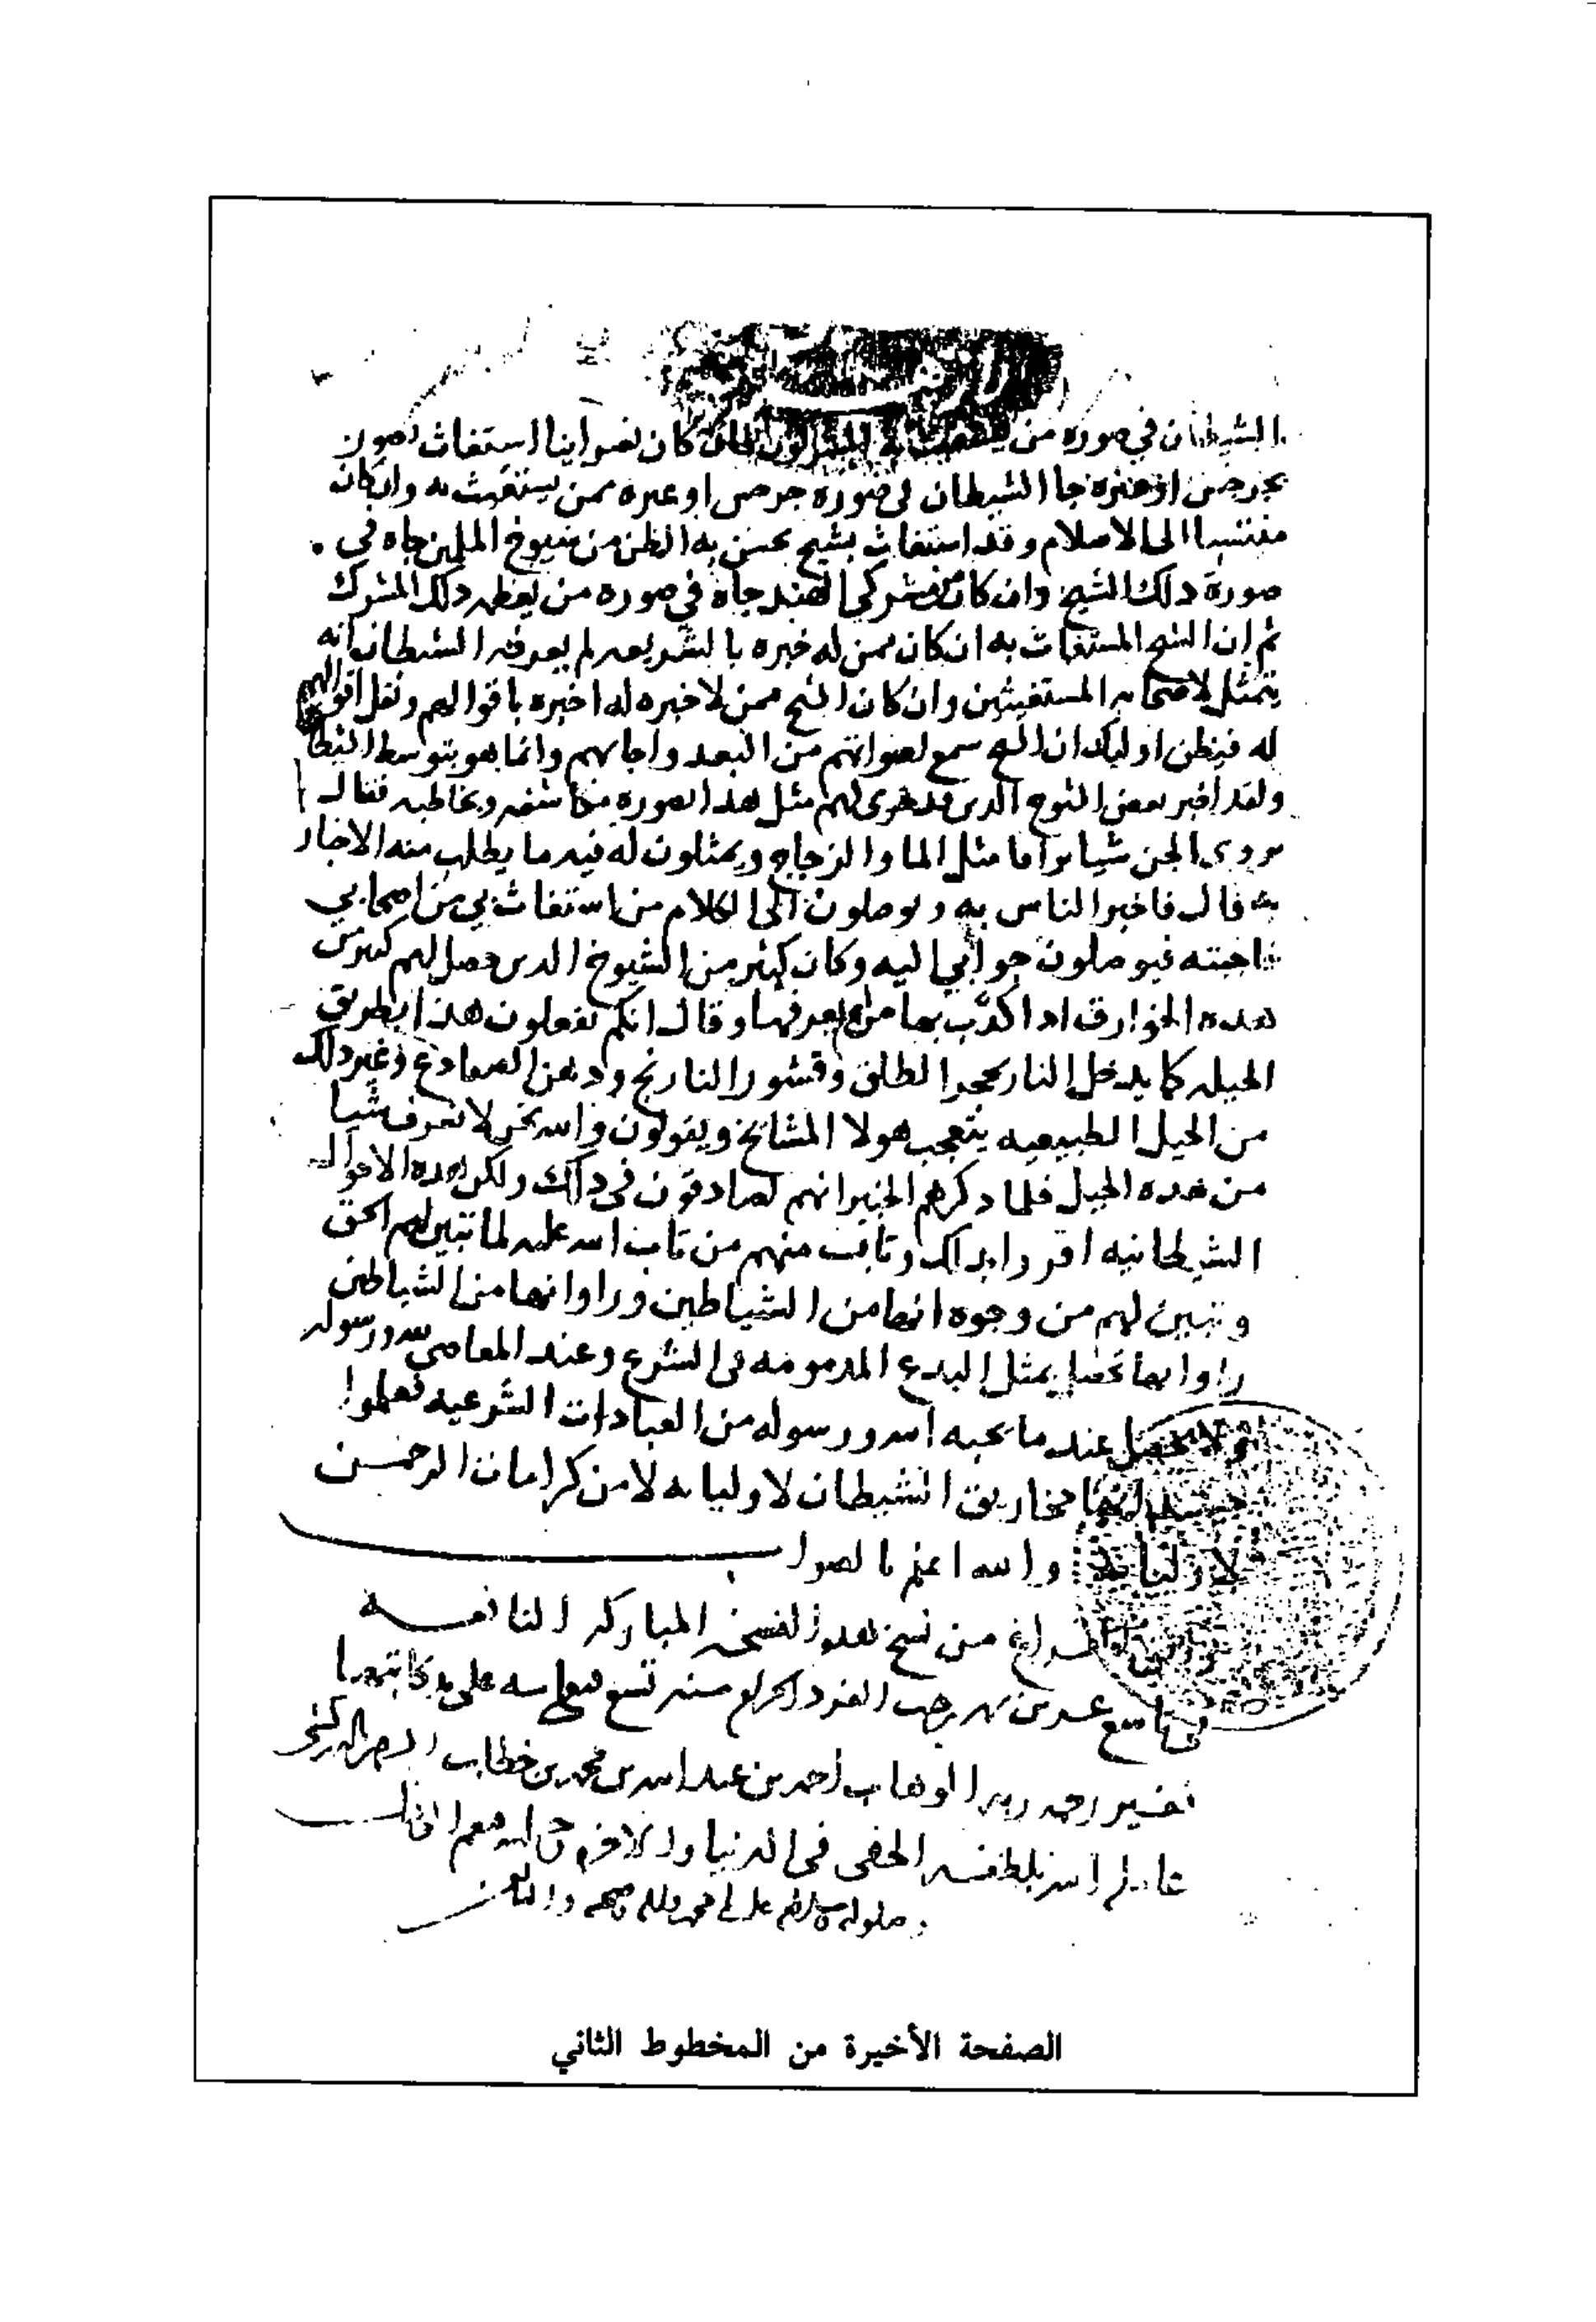 الشيطان في صوره من كان نصرانيا استغاث
بجرجس او غيره جا الشيطان في صوره جرجس او غيره ممن يستغيث به وان كان
منتسبا الى الاسلام وقد استغاث بشيخ يحسن به الظن من شيوخ المسلمين جاه في
صورة ذلك الشيخ وان كان من مشركي الهند جاه في صوره من يعظمه ذلك المشرك
ثم ان الشيخ المستغاث به ان كان ممن له خبره بالشريعه لم يعرفه الشيطان انه
يتمثل لاصحابه المستغيثين وان كان الشيخ ممن لا خبره له اخبره باقوالهم ونقل اقوالهم
له فيظن اوليك ان الشيخ سمع اصواتهم من البعد واجابهم وانما هو بتوسط الشيطان
ولقد اخبر بعض الشيوخ الذين قد جرى لهم مثل هذا بصوره مكاشفه ومخاطبه فقال
يروني الجن شيا براقا مثل الما والزجاج ويمثلون له فيه ما يطلب منه الاخبار
به قال فاخبر الناس به ويوصلون الي الكلام من استغاث بي من اصحابي
فاجبته فيوصلون جوابي اليه وكان كثير من الشيوخ الذين حصل لهم كثير من
هذه الخوارق اذا كذب بها من لم يعرفها وقال انكم تفعلون هذا بطريق
الحيله كما يدخل النار بحجر الطلق وقشور النارنج ودهن الضفادع وغير ذلك
من الحيل الطبيعيه يتعجب هولا المشايخ ويقولون والله نحن لا نعرف شيا
من هذه الحيل فلما ذكر لهم الخبير انهم لصادقون في ذلك ولكن هذه الاحوال
الشيطانيه اقروا بذلك وتاب منهم من تاب الله عليه لما تبين لهم الحق
وتبين لهم من وجوه انها من الشياطين وراوا انها من الشياطين
راوا انها تحصل بمثل البدع المذمومه في الشرع وعند المعاصي لله ورسوله
ولا تحصل عند ما يحبه الله ورسوله من العبادات الشرعيه فعلموا
حينئذ انها مخاريق الشيطان لاوليايه لا من كرامات الرحمن
لاوليايه والله اعلم بالصواب
الفراغ من نسخ هذه النسخه المباركه النافعه
في تاسع عشرين شهر رجب الفرد الحرام سنه تسع على يد كاتبها
فقير رحمة ربه الوهاب احمد بن عبد الله بن محمد بن خطاب
عامله الله بلطفه الخفي في الدنيا والاخره
وصلواته على محمد وصحبه
الصفحة الأخيرة من المخطوط الثاني